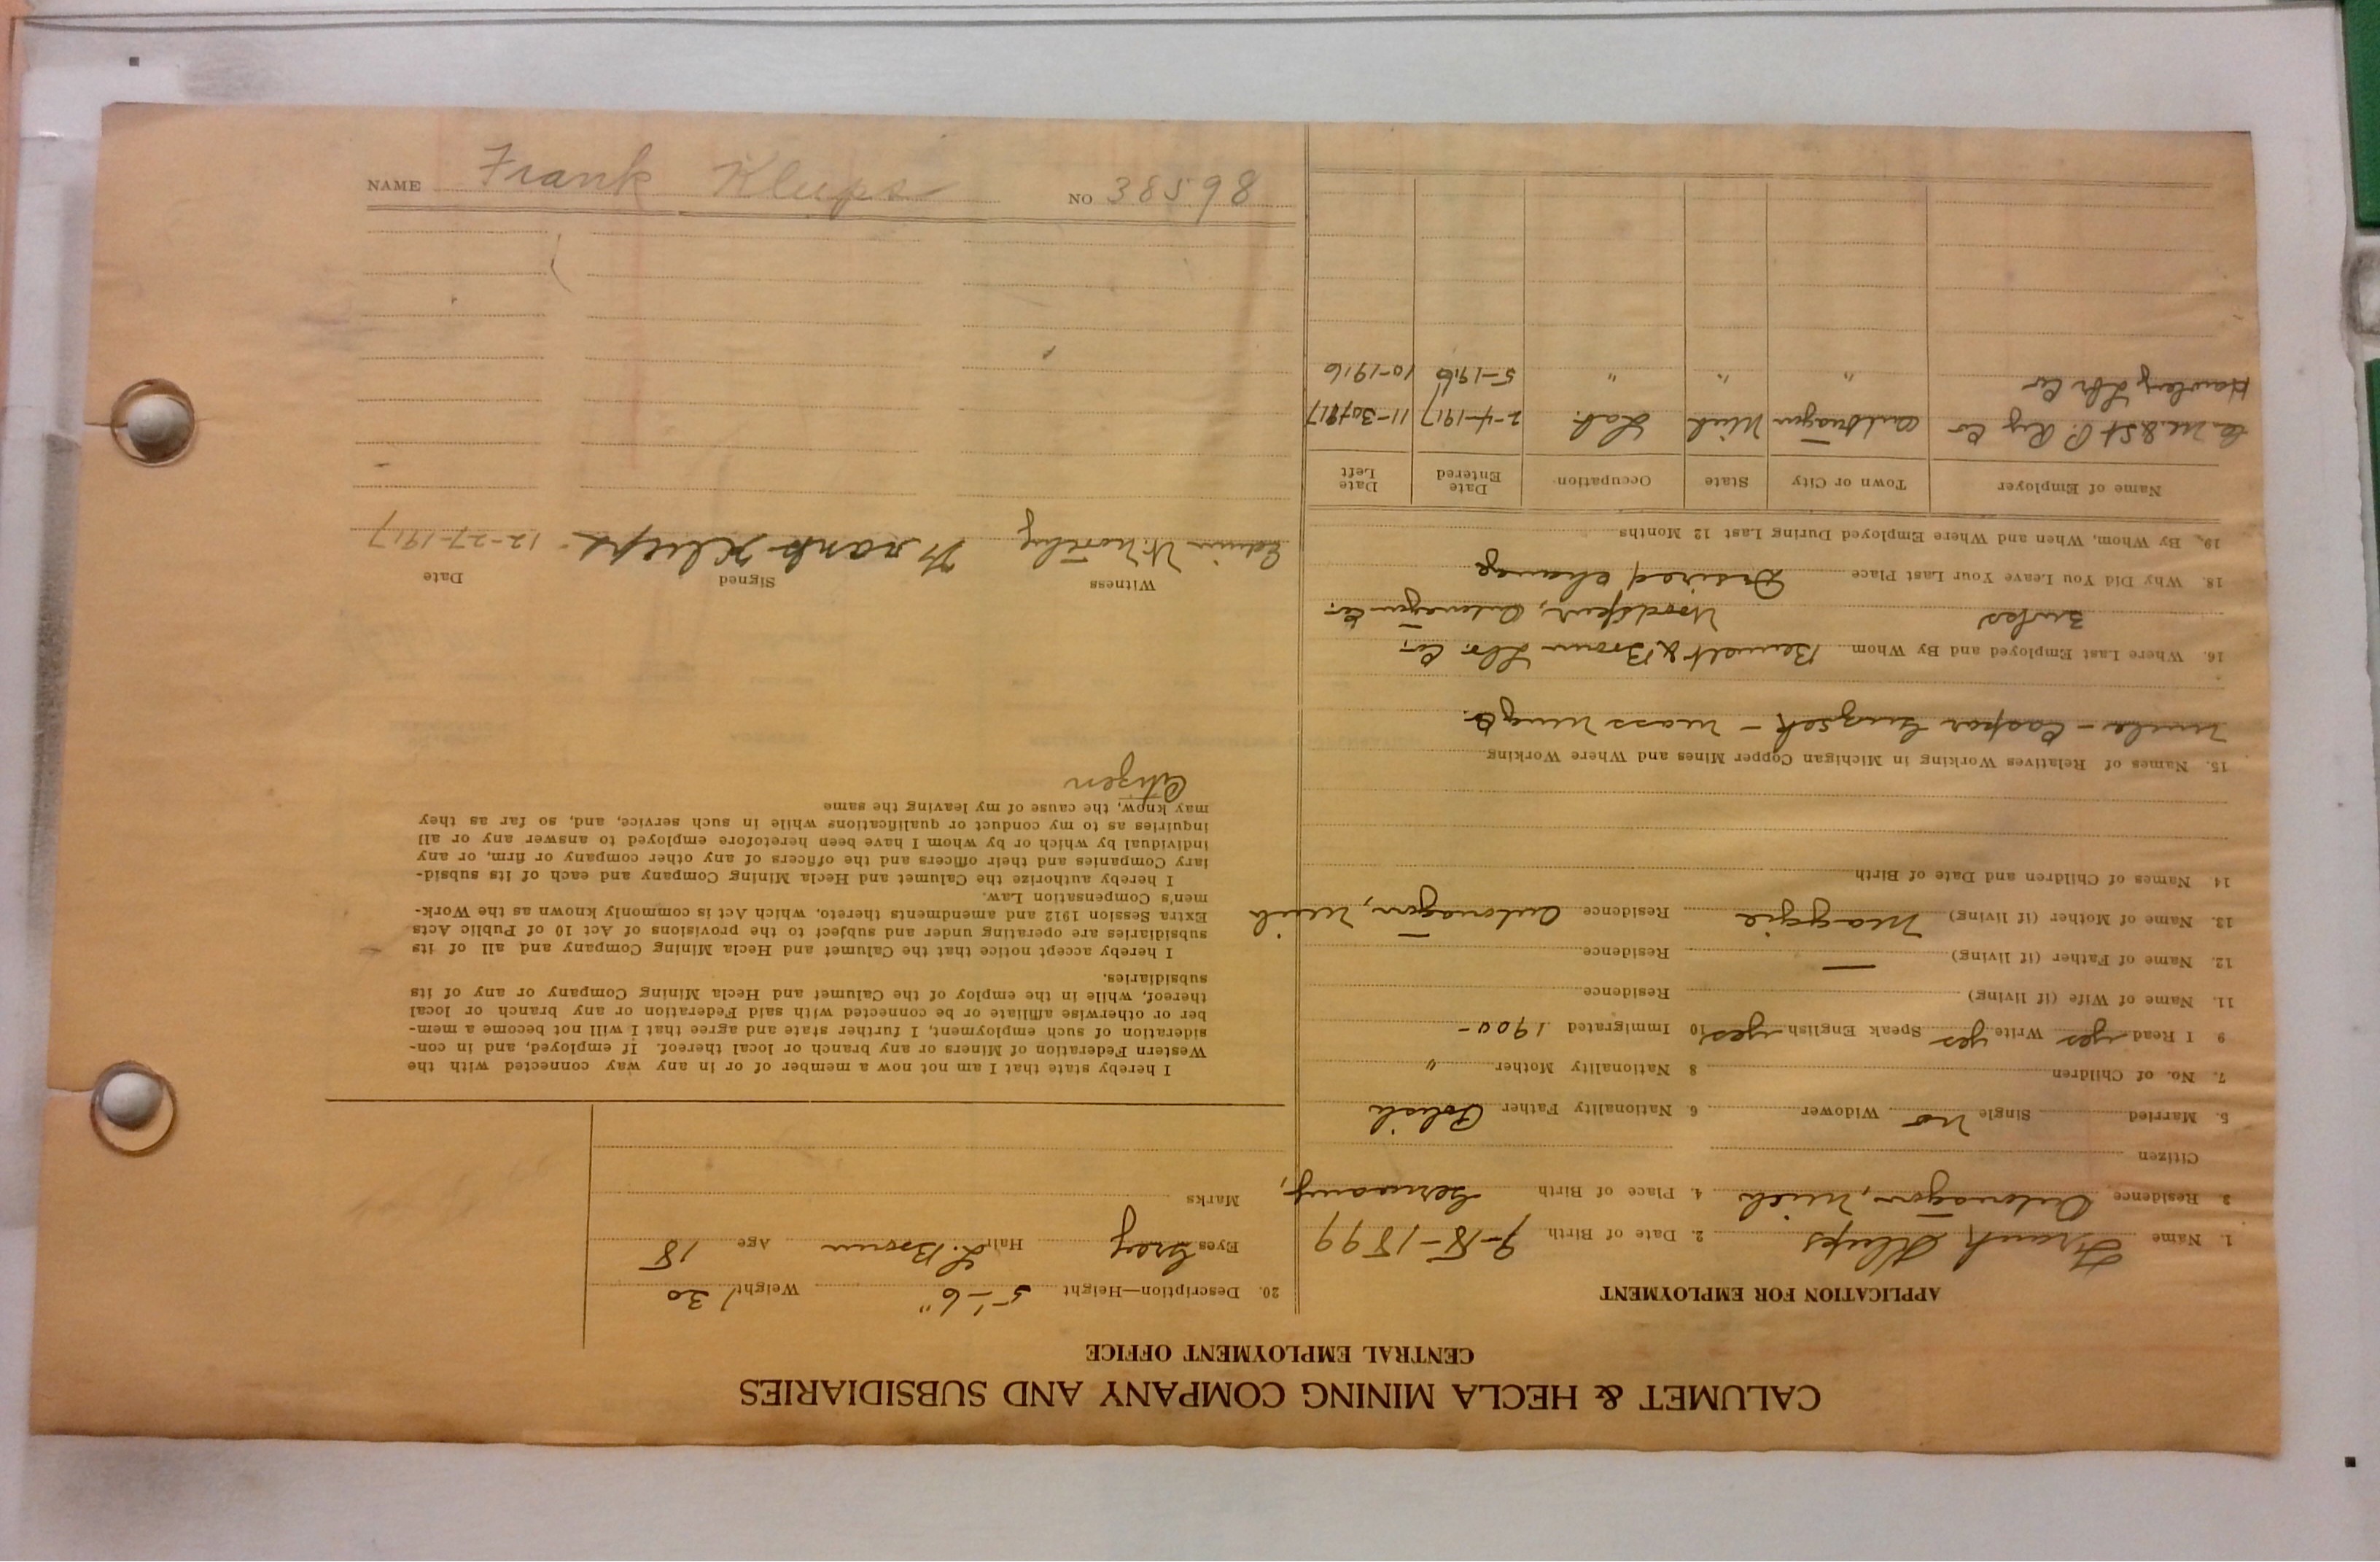 CALUMET & HECLA MINING COMPANY AND SUBSIDIARIES
CENTRAL EMPLOYMENT OFFICE
APPLICATION FOR EMPLOYMENT
1. Name Frank Klups 2. Date of Birth 9-18-1899
3 Residence Ontonagon, Mich 4. Place of Birth Germany,
Citizen
5. Married Single no Widower 6. Nationality Father Polish
7. No. of Children 8 Nationality Mother "
9 I Read yes Write yes Speak English yes 10 Immigrated 1900-
11. Name of Wife (if living) Residence
12. Name of Father (if living) — Residence
13. Name of Mother (if living) Maggie Residence Ontonagon, Mich
14 Names of Children and Date of Birth
15. Names of Relatives Working in Michigan Copper Mines and Where Working
Uncle - Caspar - Mass Ming Co.
16. Where Last Employed and By Whom Bennett & Brown Lbr. Co.
3 wks Woodspur, Ontonagon Co.
18. Why Did You Leave Your Last Place Desired change
19. By Whom, When and Where Employed During Last 12 Months
Name of Employer Town or City State Occupation Date Entered Date Left
C. M. & St P. Ry Co Ontonagon Mich Lab. 2-4-1917 11-30-1917
Hawley Lbr Co " " " 5-1916 10-1916
20. Description—Height 5'-6" Weight 130
Eyes Grey Hair L. Brown Age 18
Marks
I hereby state that I am not now a member of or in any way connected with the
Western Federation of Miners or any branch or local thereof. If employed, and in con-
sideration of such employment, I further state and agree that I will not become a mem-
ber or otherwise affiliate or be connected with said Federation or any branch or local
thereof, while in the employ of the Calumet and Hecla Mining Company or any of its
subsidiaries.
I hereby accept notice that the Calumet and Hecla Mining Company and all of its
subsidiaries are operating under and subject to the provisions of Act 10 of Public Acts
Extra Session 1912 and amendments thereto, which Act is commonly known as the Work-
men's Compensation Law.
I hereby authorize the Calumet and Hecla Mining Company and each of its subsid-
iary Companies and their officers and the officers of any other company or firm, or any
individual by which or by whom I have been heretofore employed to answer any or all
inquiries as to my conduct or qualifications while in such service, and, so far as they
may know, the cause of my leaving the same
Citizen
Witness Signed Date
Edwin W. Frank Klups 12-27-1917
NAME Frank Klups NO 38598